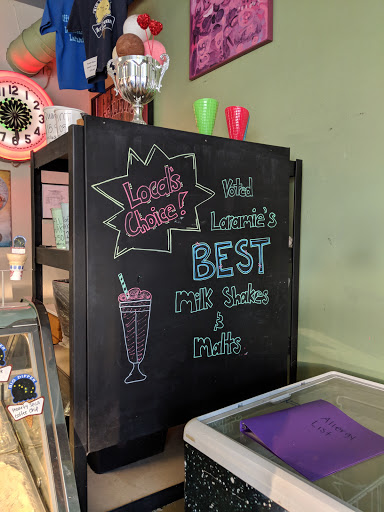 Local's
Choice!
Voted
Laramie's
BEST
Milk Shakes
&
Malts
Allergy
List